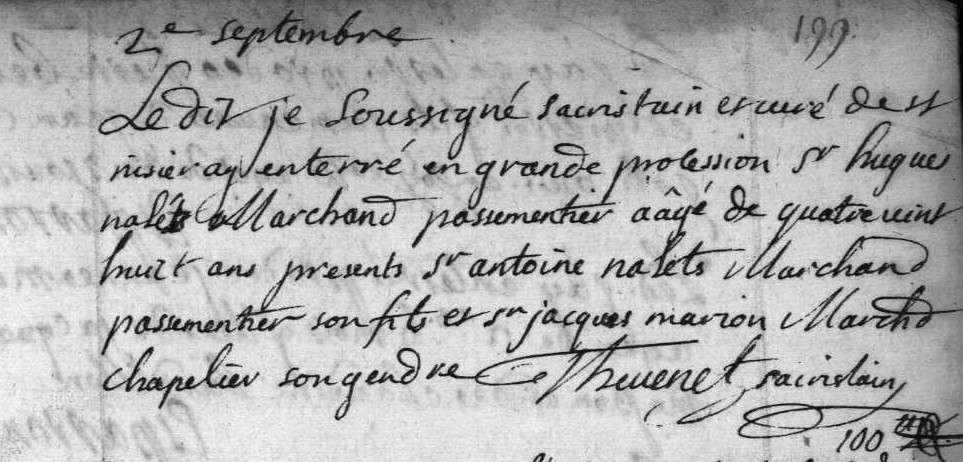 2e septembre. 199
Ledit je soussigné sacristain et curé de st
nisier ay enterré en grande procession sr hugues
nalets Marchand passementier aâgé de quatre vint
huit ans presents sr antoine nalets Marchand
passementier son fils et sr jacques marion Marchd
chapelier son gendre Thevenet sacristain
100